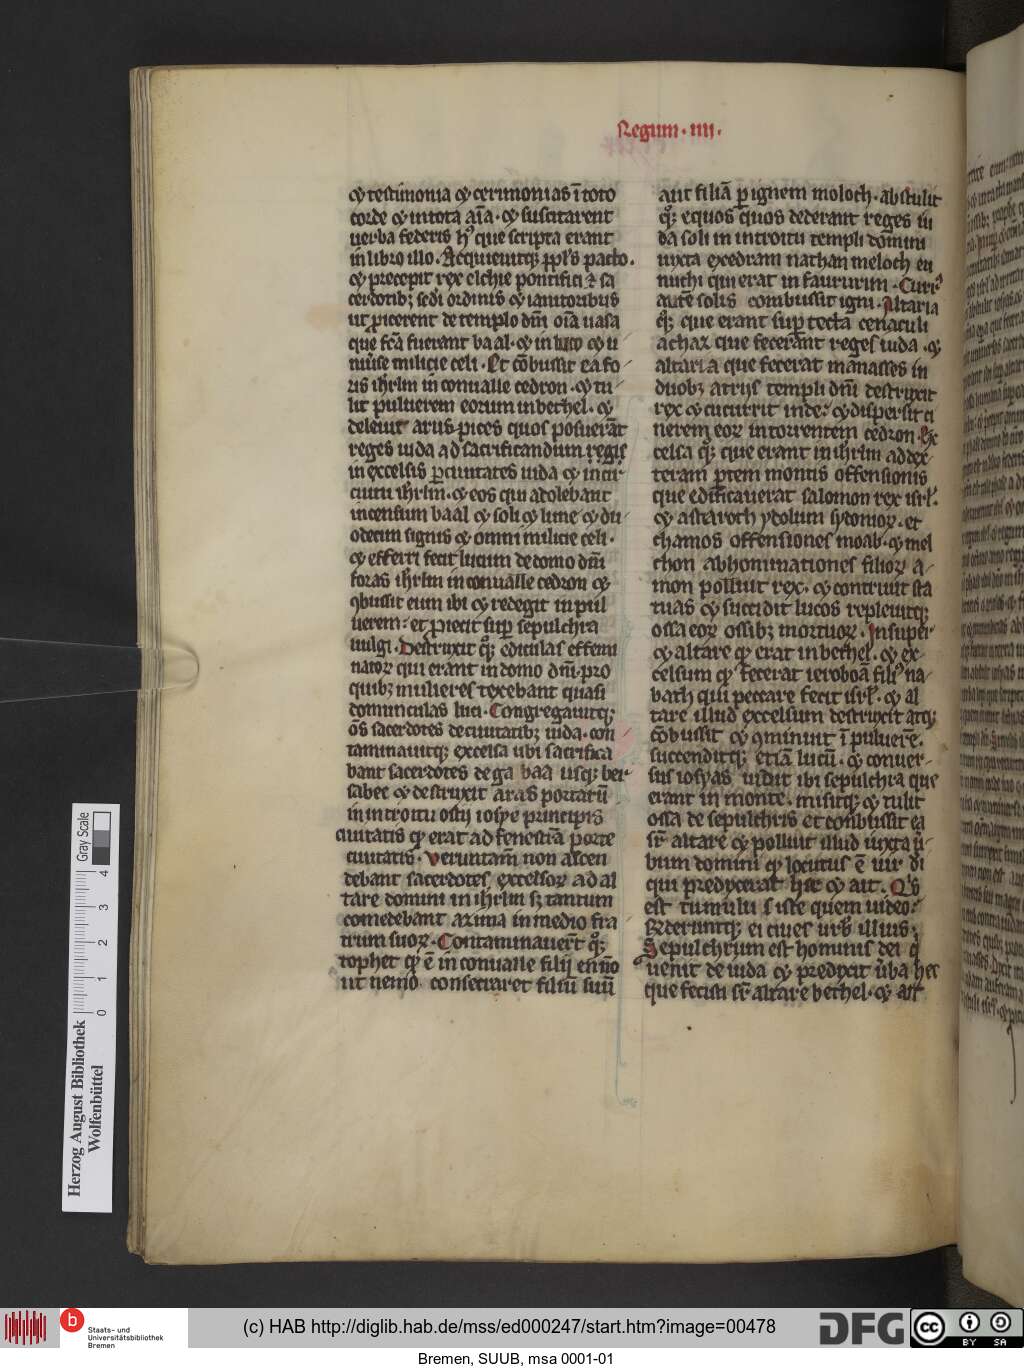 Regum · iiii ·
⁊ testimonia ⁊ cerimonias ī toto
corde ⁊ in tota aīa · ⁊ suscitarent
uerba federis hꝰ que scripta erant
in libro illo · Acquieuitqꝫ ppl's pacto ·
⁊ precepit rex elchie pontifici ⁊ sa
cerdotibꝫ sc̄di ordinis ⁊ ianitoribus
ut ꝓicerent de templo dn̄i oīa uasa
que fc̄a fuerant baal · ⁊ in luco ⁊ u
niu'se milicie celi · Et cōbussit ea fo
ris ih'rlm in conualle cedron · ⁊ tu
lit puluerem eorum in bethel · ⁊
deleuit aruspices quos posuerāt
reges iuda ad sacrificandum regis
in excelsis ꝑ ciuitates iuda ⁊ in cir
cuitu ih'rlm · ⁊ eos qui adolebant
incensum baal ⁊ soli ⁊ lune ⁊ du
odecim signis ⁊ omni milicie celi ·
⁊ efferri fecit lucum de domo dn̄i
foras ih'rlm in conualle cedron ⁊
ꝯbussit eum ibi ⁊ redegit in pul
uerem · et ꝓiecit suꝑ sepulchra
uulgi · Destruxit qꝫ ediculas effemi
natoꝝ qui erant in domo dn̄i · pro
quibꝫ mulieres texebant quasi
domunculas luci · Congregauitqꝫ
oēs sacerdotes de ciuitatibꝫ iuda · con
taminauitqꝫ excelsa ubi sacrifica
bant sacerdotes de gabaa usqꝫ ber
sabee ⁊ destruxit aras portarū
in introitu ostij iosye principis
ciuitatis qđ erat ad fenestrā porte
ciuitatis · Veruntam̄ non ascen
debant sacerdotes excelsoꝝ ad al
tare domini in ih'rlm sꝫ tantum
comedebant azima in medio fra
trum suoꝝ · Contaminauer̄t qꝫ
tophet qđ ē in conualle filij ennō
ut nemo consecraret filiū suū
aut filiā ꝑ ignem moloch · abstulit
qꝫ equos quos dederant reges iu
da soli in introitu templi domini
iuxta exedram nathan meloch eu
nuchi qui erat in faururim · Curr
aute solis combussit igni · Altaria
qꝫ que erant suꝑ tecta cenaculi
achaz que fecerant reges iuda · ⁊
altaria que fecerat manasses in
duobꝫ atrijs templi dn̄i destruxit
rex ⁊ cucurrit inde · ⁊ dispersit ci
nerem eoꝝ in torrentem cedron · Ex
celsa qꝫ que erant in ih'rlm ad dex
teram ꝑtem montis offensionis
que edificauerat salomon rex isrl' ·
⁊ astaroth ydolum sydonioꝝ · et
chamos offensiones moab · ⁊ mel
chon abhominationes filioꝝ a
mon polluit rex · ⁊ contriuit sta
tuas ⁊ succidit lucos repleuitqꝫ
ossa eoꝝ ossibꝫ mortuoꝝ · Insuper
⁊ altare qđ erat in bethel · ⁊ ex
celsum qđ fecerat ieroboā filiꝰ na
bath qui peccare fecit isrl' · ⁊ al
tare illud excelsum destruxit atqꝫ
cōbussit ⁊ ꝯminuit ī puluerē ·
succenditqꝫ etiā lucū · ⁊ conuer
sus iosyas uidit ibi sepulchra que
erant in monte · misitqꝫ ⁊ tulit
ossa de sepulchris et conbussit ea
sr̄ altare ⁊ polluit illud iuxta u'
bum domini qđ locutus ē uir di
qui predixerat hec ⁊ ait · Qi's
est tumulus iste quem uideo ·
Rīderuntqꝫ ei ciues urb' illius ·
Sepulchrum est hominis dei q
uenit de iuda ⁊ predixit u'ba hec
que fecisti sr̄ altare bethel · ⁊ ait
Herzog August Bibliothek
Wolfenbüttel
Gray Scale
0 1 2 3 4
b
Staats- und
Universitätsbibliothek
Bremen
(c) HAB http://diglib.hab.de/mss/ed000247/start.htm?image=00478
DFG
cc
BY SA
Bremen, SUUB, msa 0001-01